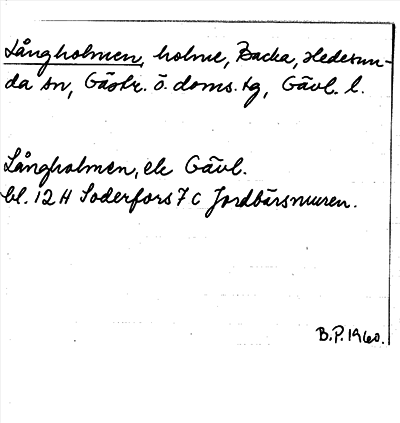 Långholmen, holme, Backa, Hedesun-
da sn, Gästr. ö. doms. tg, Gävl. l.
Långholmen, ek Gävl.
bl. 12 H Söderfors 7 C Jordbärsmuren.
B.P. 1960.